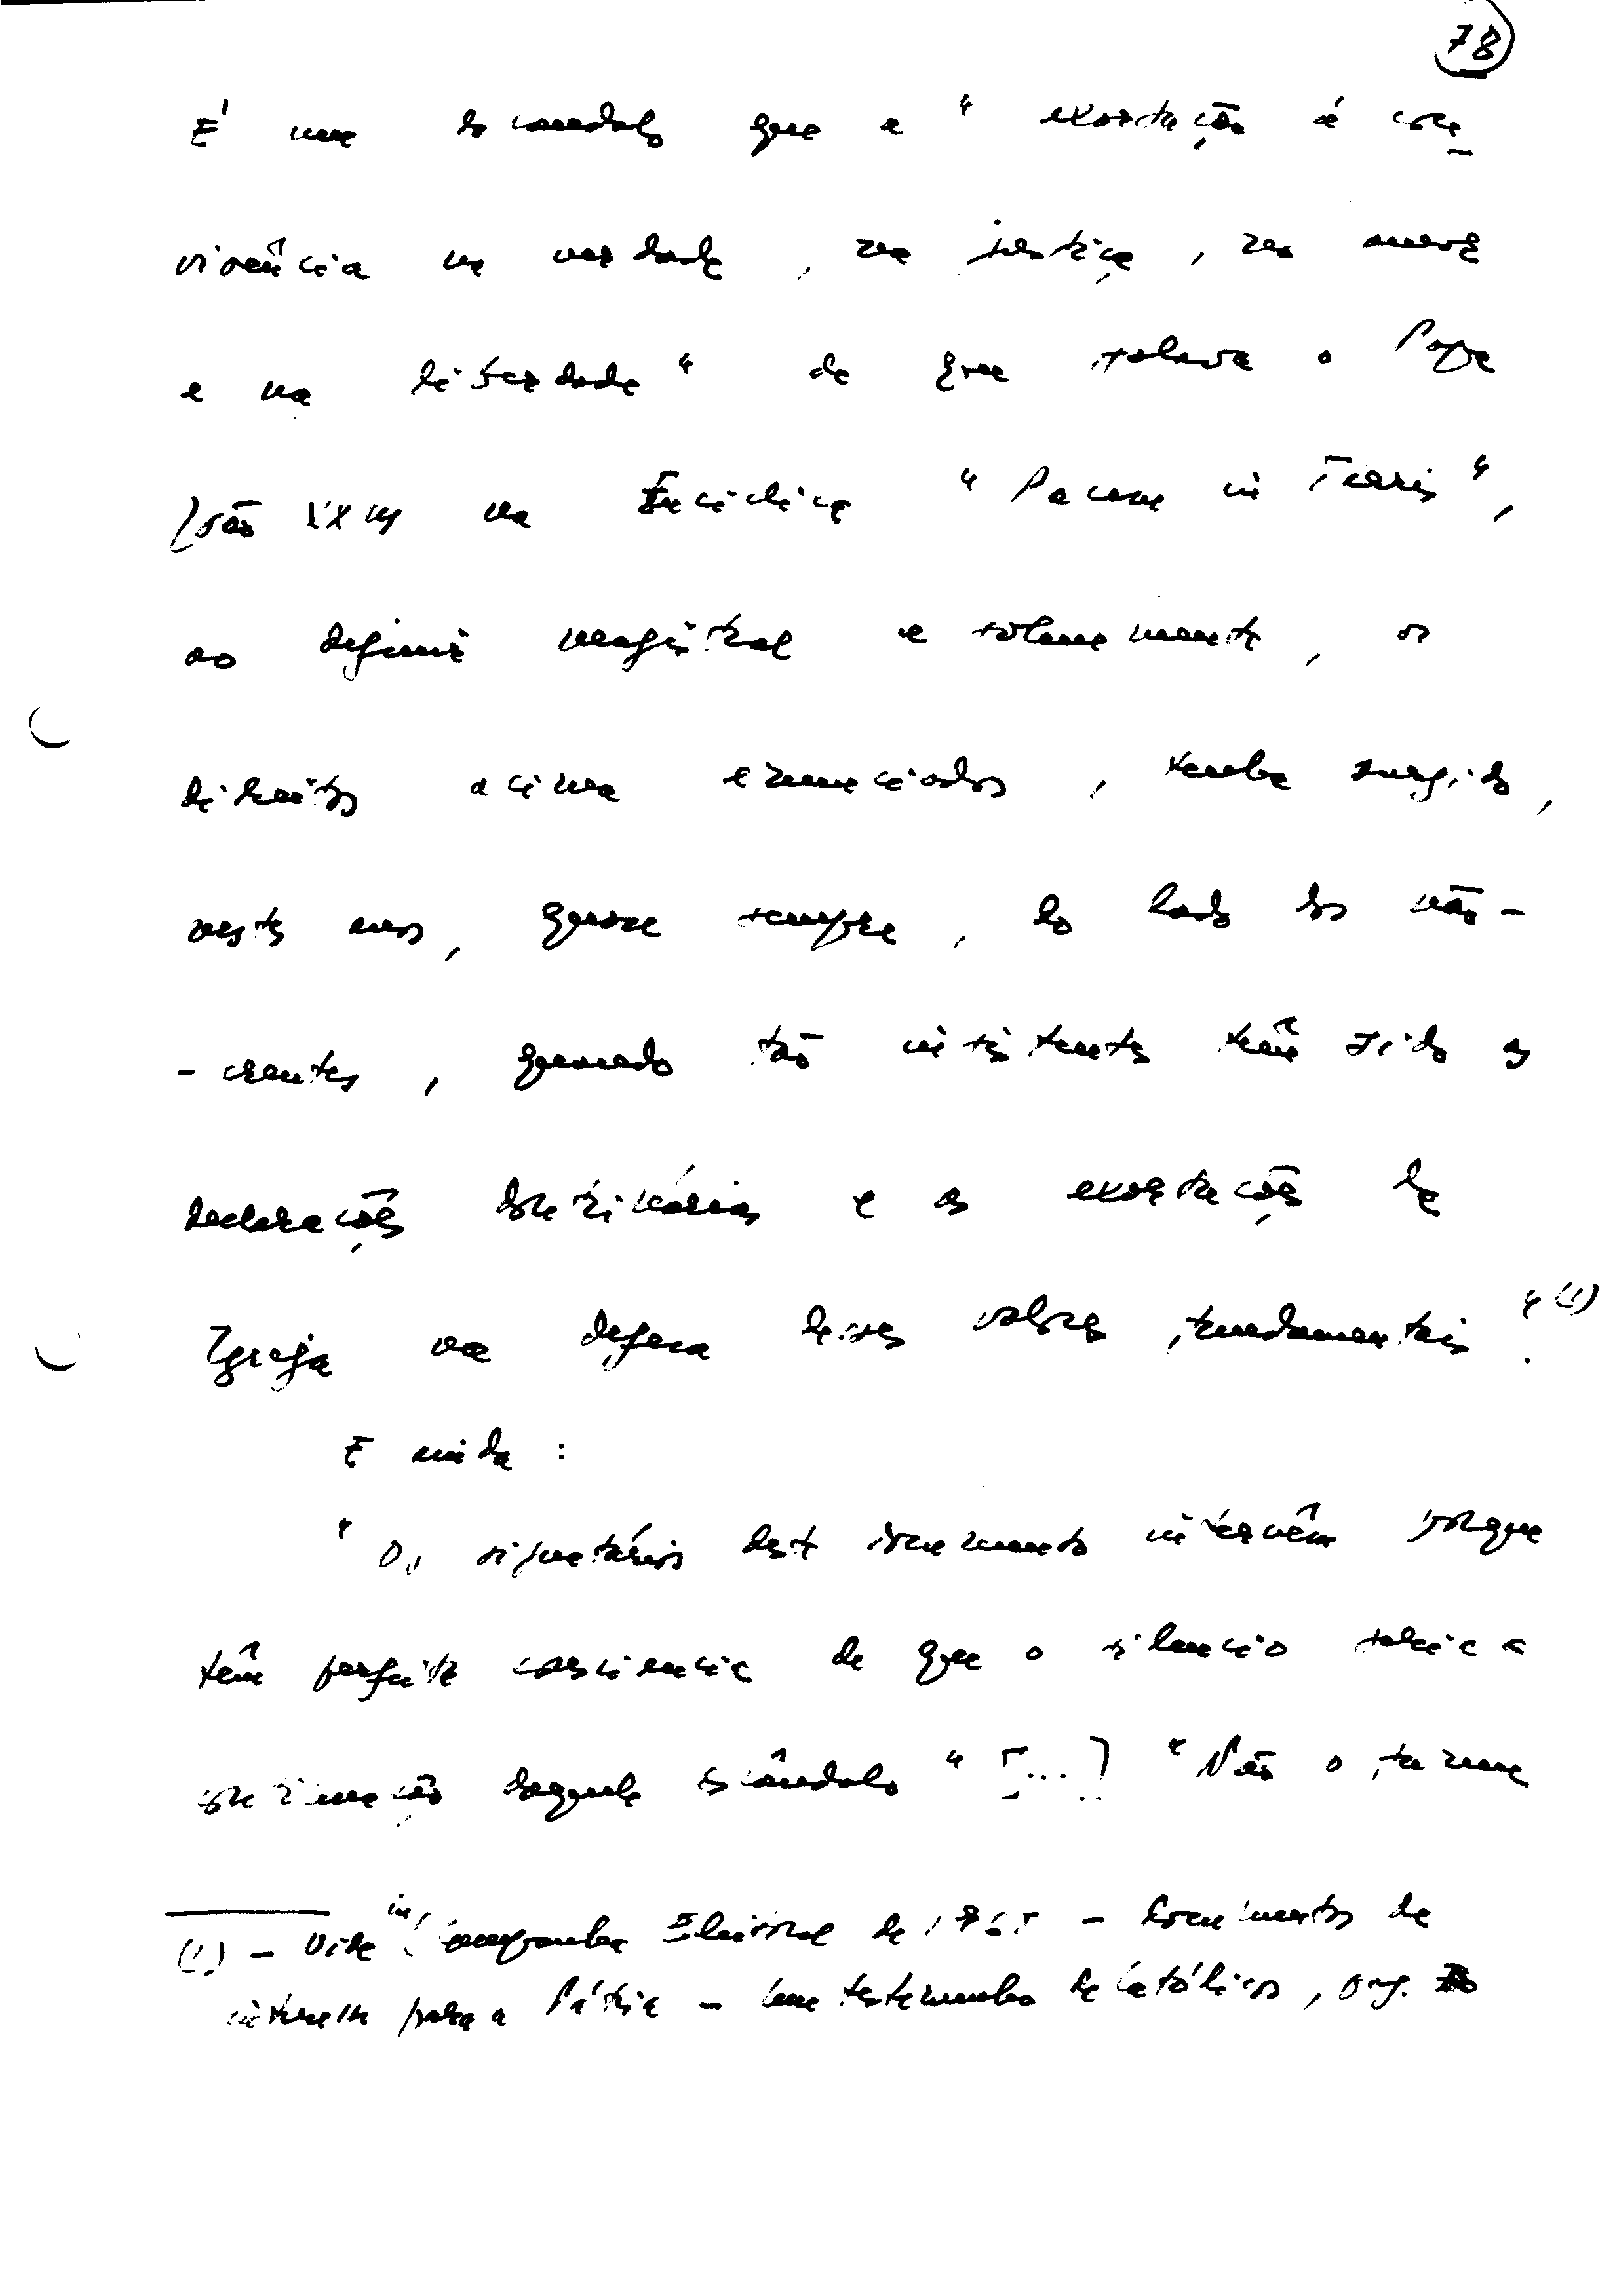 78
É um escandalo que a " exortação à con
vivência na verdade, na justiça, no amor
e na liberdade " de que falava o Papa
João XXIII na Encíclica " Pacem in Terris ",
ao definir magistral e solenemente, os
direitos acima enunciados, tenha surgido,
neste anos, quase sempre, do lado dos não-
- crentes, quando tão insistentes têm sido as
declarações doutrinárias e as exortações da
Igreja na defesa desses valores fundamentais ". (1)
E ainda :
" Os signatários deste documento intervêm porque
têm perfeita consciencia de que o silencio seria a
continuação daquele escândalo " [...] " Não o fazem
(1) - Vide in Campanha Eleitoral de 1965 - Documentos de
interesse para a Pátria - Um testemunho de Católicos, org. do